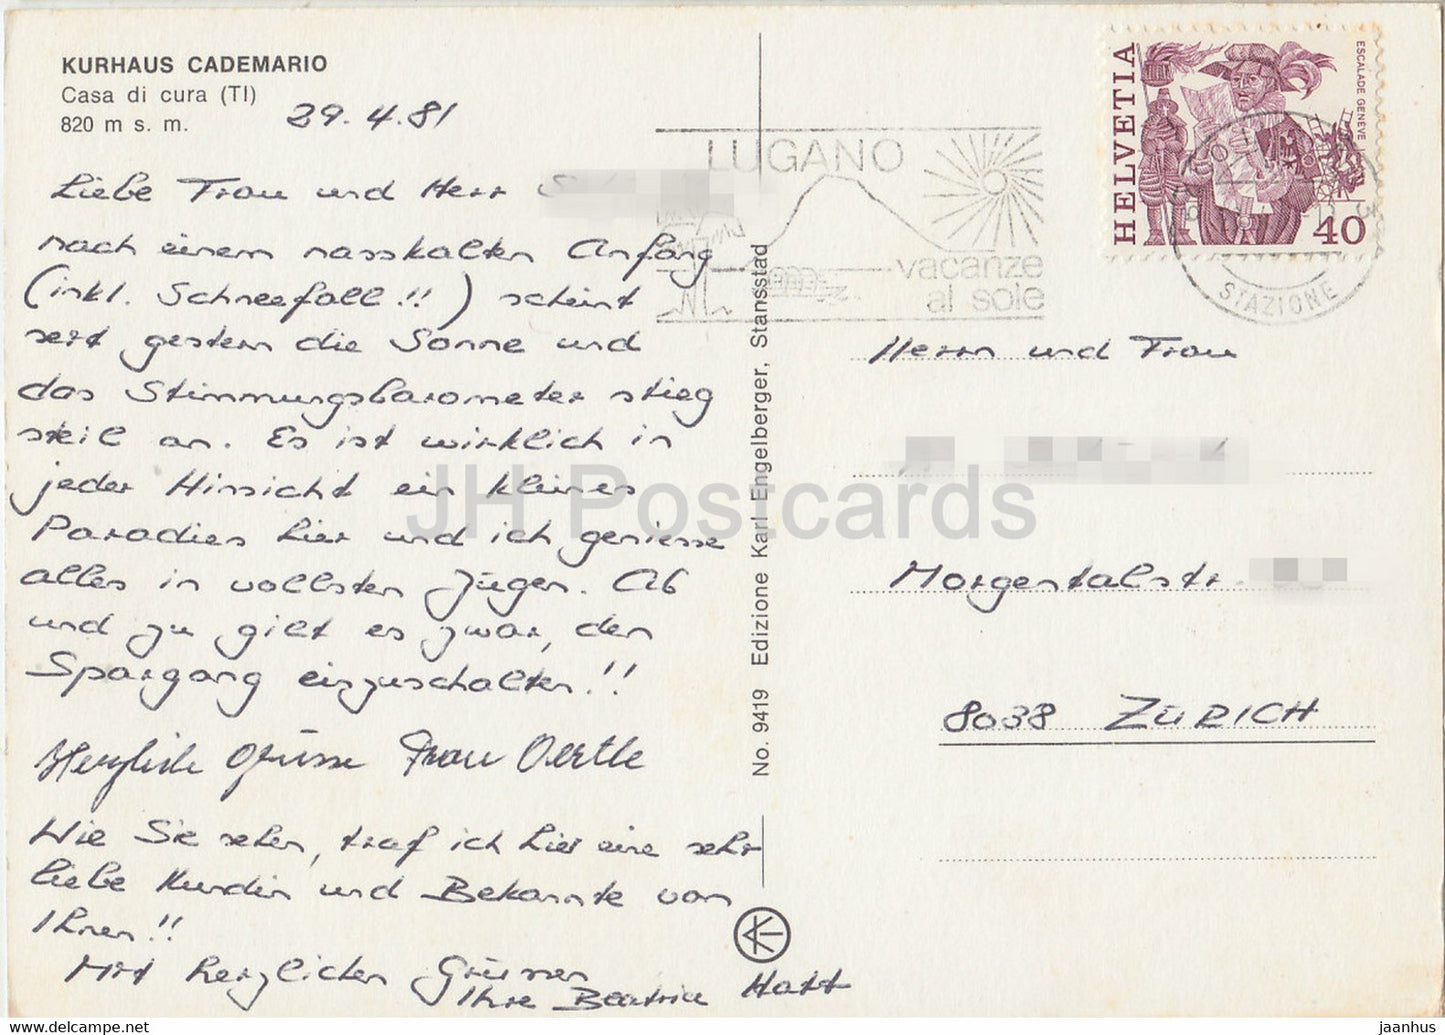 KURHAUS CADEMARIO
Casa di cura (TI)
820 m s. m.
29.4.81
Liebe Frau und Herr
nach einem nasskalten Anfang
(inkl. Schneefall!!) scheint
seit gestern die Sonne und
das Stimmungsbarometer stieg
steil an. Es ist wirklich in
jeder Hinsicht ein kleines
Paradies hier und ich geniesse
alles in vollsten Zügen. Ab
und zu gilt es zwar, den
Spargang einzuschalten!!
Herzliche Grüsse Frau Oertle
Wie Sie sehen, traf ich hier eine sehr
liebe Kundin und Bekannte von
Ihnen!!
Mit herzlichen Grüssen
Ihre Beatrice Hatt
No. 9419 Edizione Karl Engelberger, Stansstad
LUGANO
vacanze
al sole
HELVETIA
ESCALADE GENÈVE
40
STAZIONE
Herrn und Frau
Morgentalstr.
8038 ZÜRICH
JH Postcards
www.delcampe.net
jaanhus